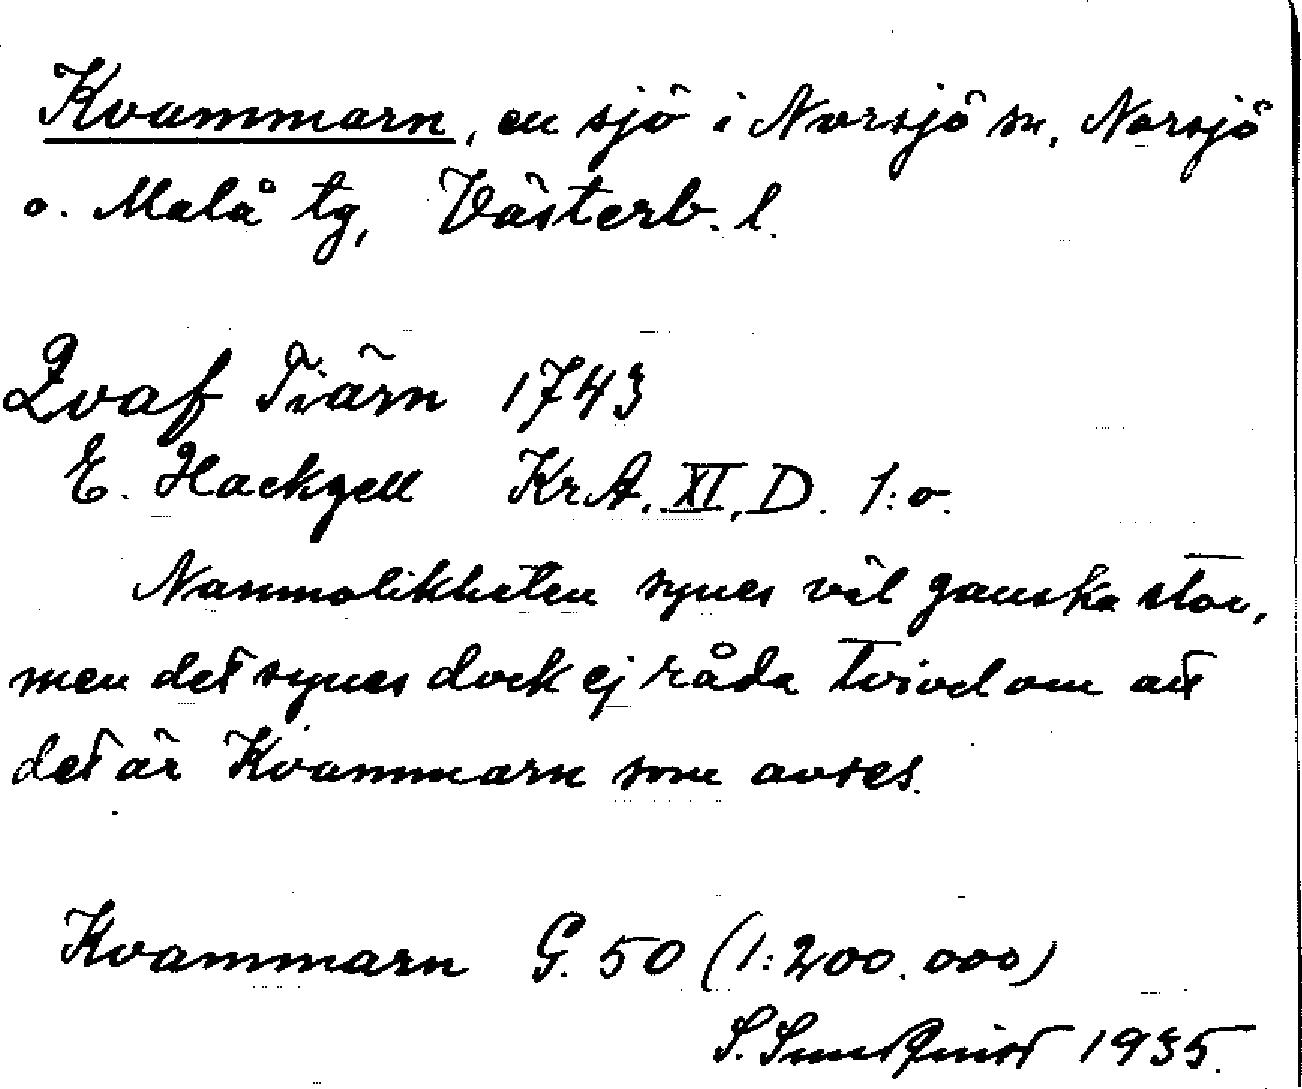 Kvammarn, en sjö i Norsjö sn, Norsjö
o. Malå tg, Västerb. l.
Qvaf Tiärn 1743
E. Hackzell KrA. XI, D. 1:o.
Namnolikheten synes väl ganska stor,
men det synes dock ej råda tvivel om att
det är Kvammarn som avses.
Kvammarn G. 50 (1:200.000)
S. Sundqvist 1935.